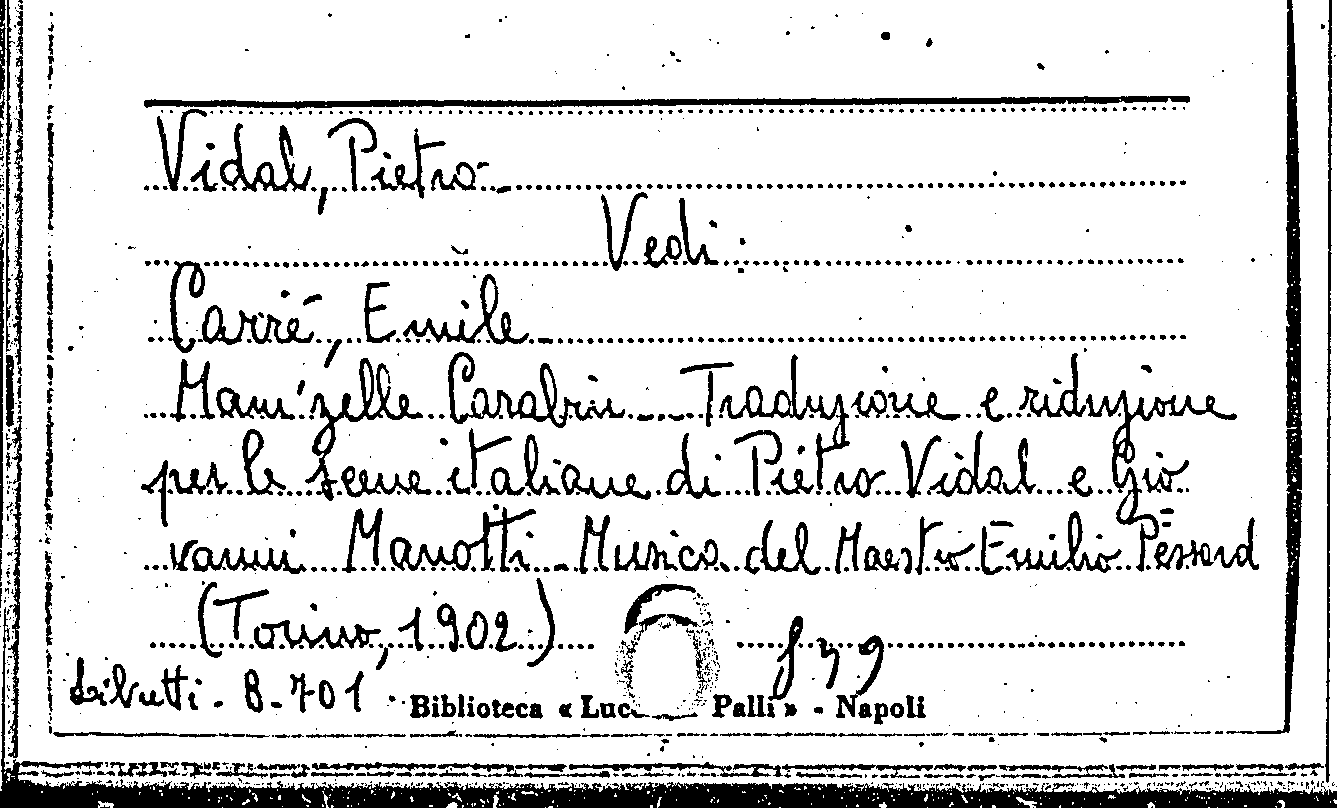 Vidal, Pietro -
Vedi:
Carré, Emile -
Mam'zelle Carabin - Traduzione e riduzione
per le scene italiane di Pietro Vidal e Gio
vanni Manotti - Musica del Maestro Emilio Péssard
(Torino, 1902)
f 39
Libretti - B-701 Biblioteca « Luc Palli » - Napoli